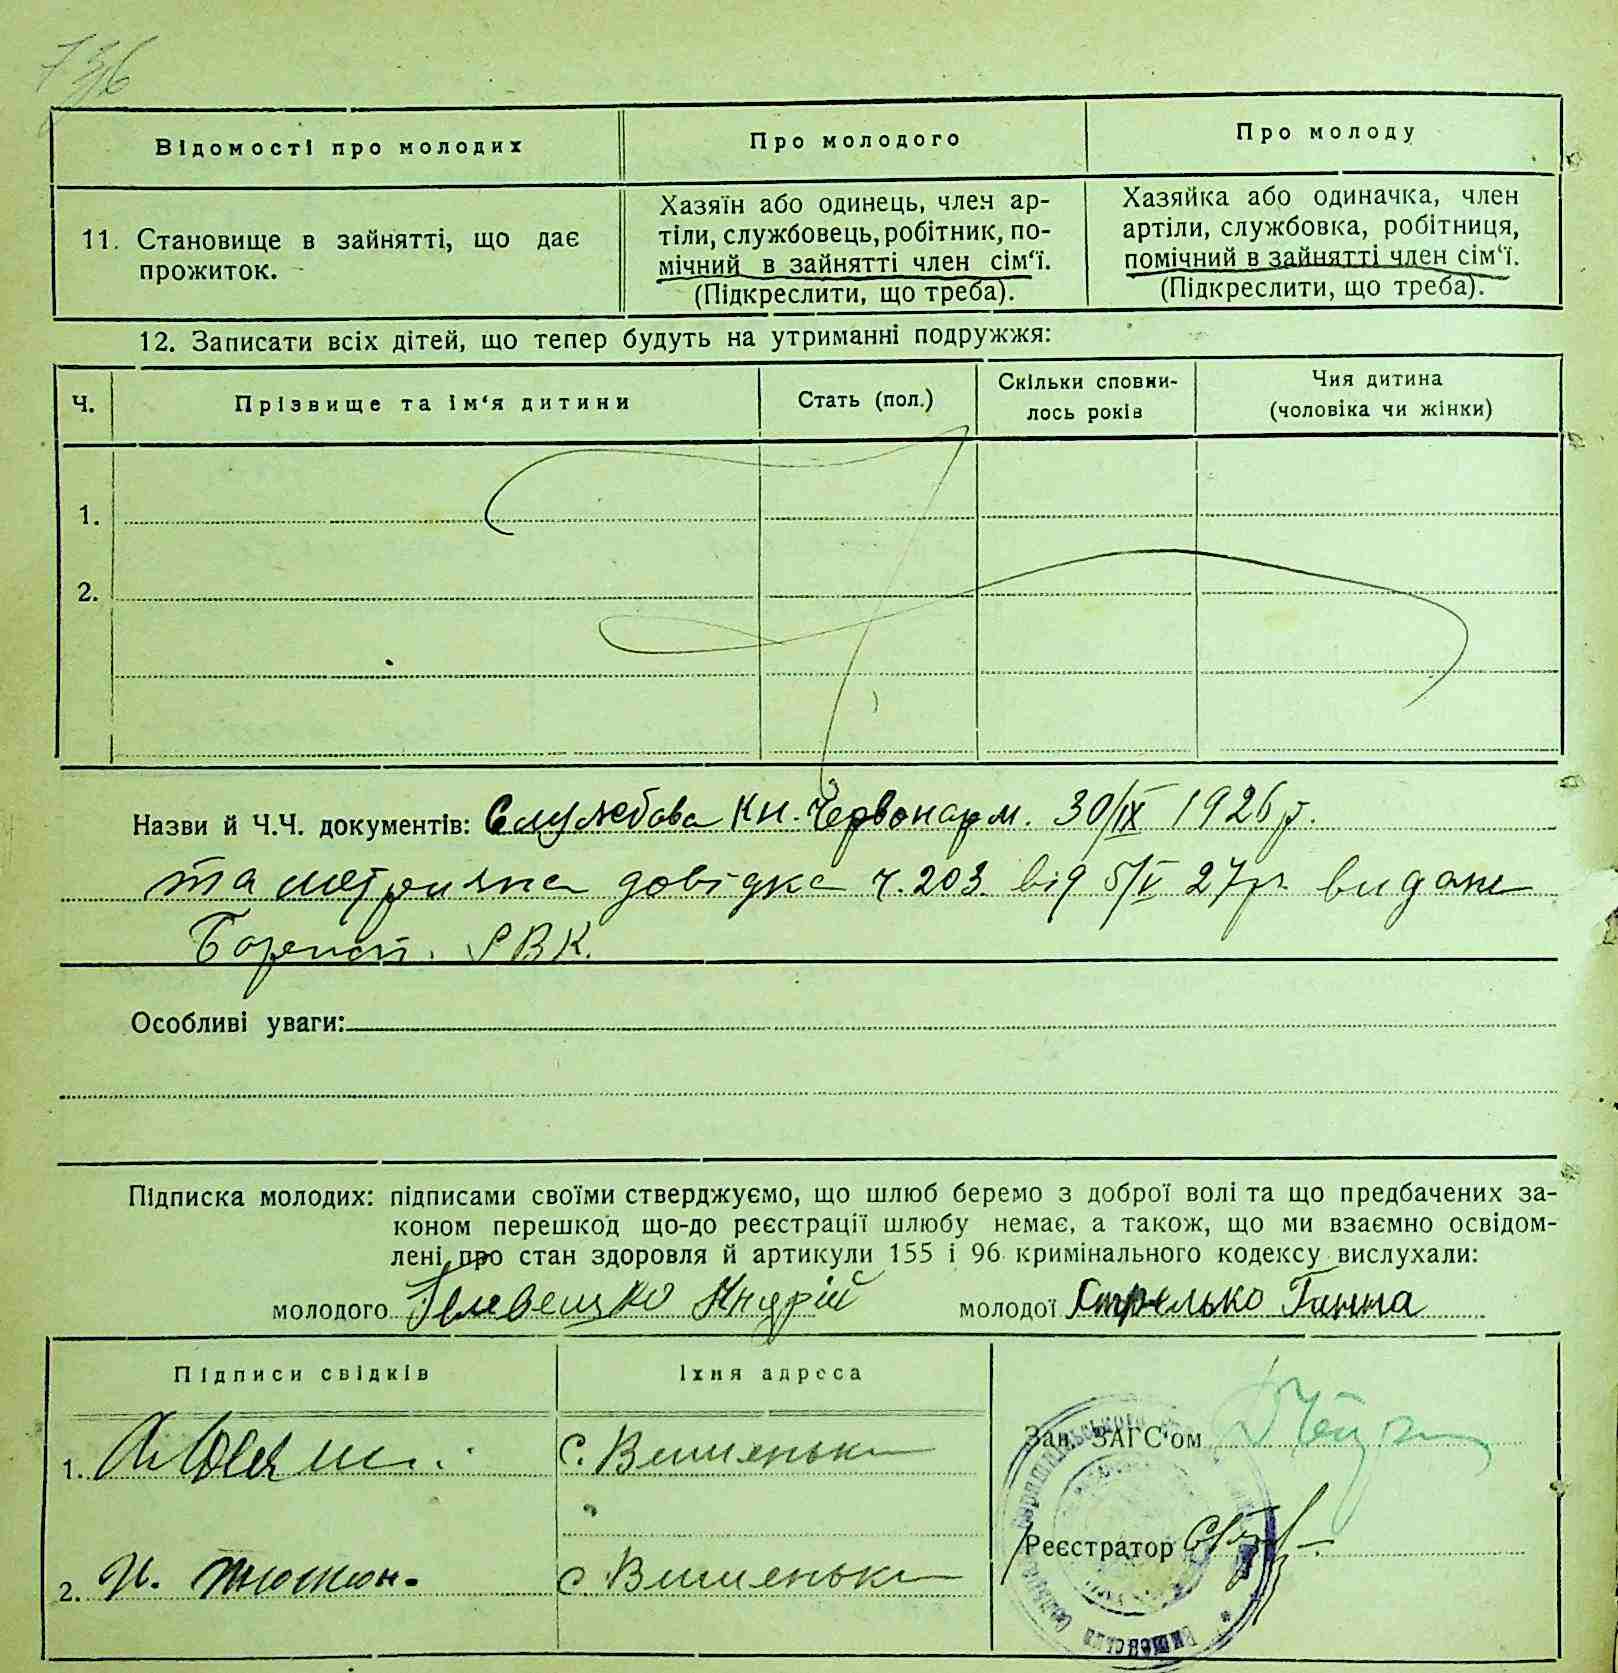 736
Відомості про молодих
Про молодого
Про молоду
11. Становище в зайнятті, що дає
прожиток.
Хазяїн або одинець, член ар-
тіли, службовець, робітник, по-
мічний в зайнятті член сім'ї.
(Підкреслити, що треба).
Хазяйка або одиначка, член
артіли, службовка, робітниця,
помічний в зайнятті член сім'ї.
(Підкреслити, що треба).
12. Записати всіх дітей, що тепер будуть на утриманні подружжя:
Ч.
Прізвище та ім'я дитини
Стать (пол.)
Скільки сповни-
лось років
Чия дитина
(чоловіка чи жінки)
1.
2.
Назви й Ч.Ч. документів: Службова Кн. Червонарм. 30/IX 1926 р.
та метрична довідка ч. 203 від 5/V 27 р. видане
РВК.
Особливі уваги:
Підписка молодих: підписами своїми стверджуємо, що шлюб беремо з доброї волі та що предбачених за-
коном перешкод що-до реєстрації шлюбу немає, а також, що ми взаємно освідом-
лені про стан здоровля й артикули 155 і 96 кримінального кодексу вислухали:
молодого Андрій молодої Стрелько Ганна
Підписи свідків
Їхня адреса
1. с. Вишеньки
2. с. Вишеньки
Зав. ЗАГС'ом
Реєстратор